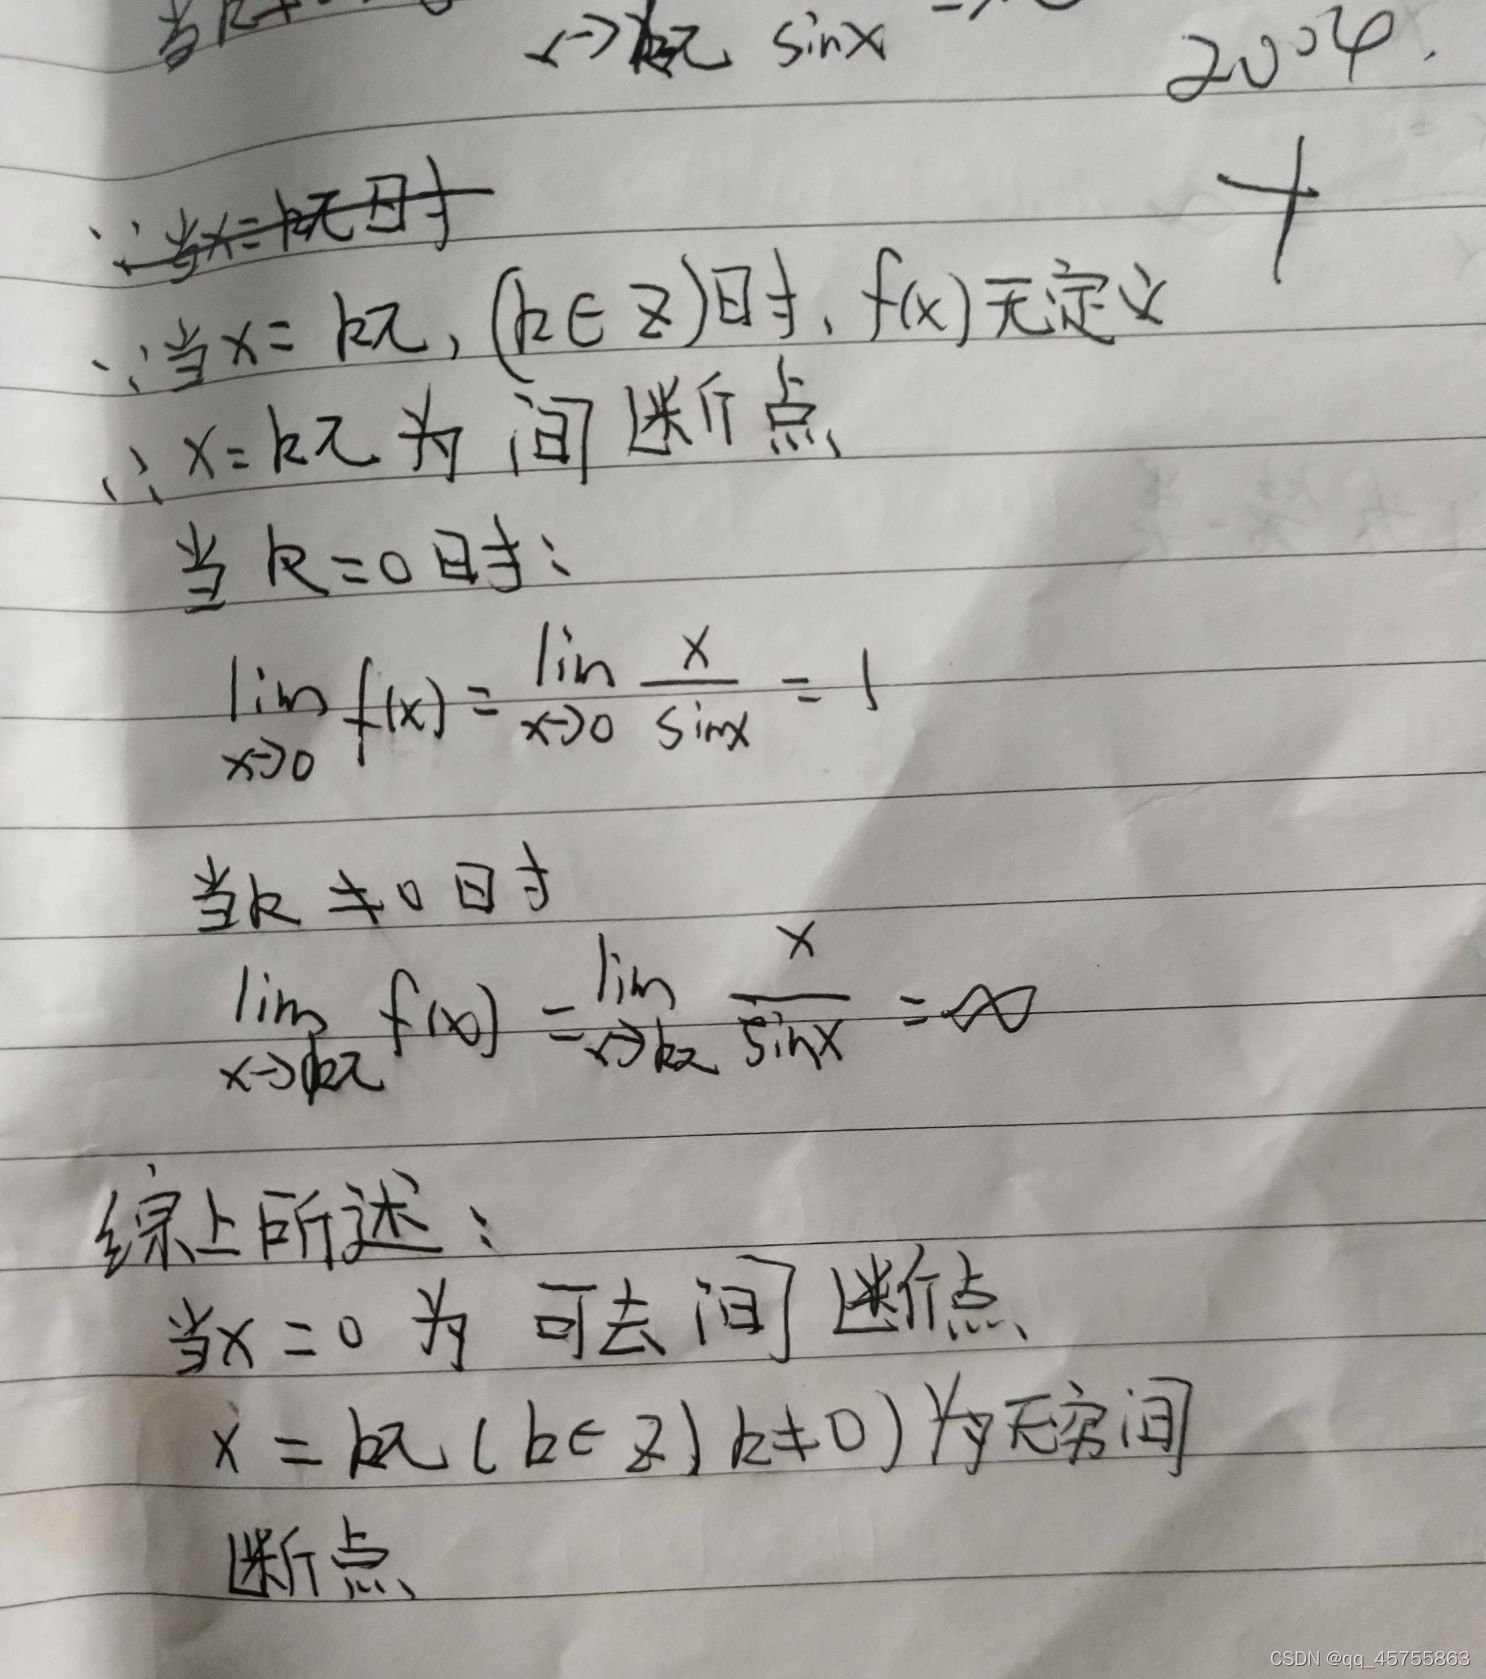 当k≠0
x→kπ sinx =∞
2004.
∵当x=kπ时
∵当x=kπ,(k∈Z)时、f(x)无定义
∴x=kπ为间断点
当k=0时:
lim f(x) = lim x/sinx = 1
x→0 x→0
当k≠0时
lim f(x) = lim x/sinx = ∞
x→kπ x→kπ
综上所述:
当x=0为可去间断点
x=kπ(k∈Z)k≠0)为无穷间
断点
CSDN @qq_45755863